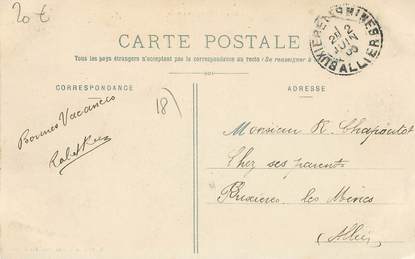 20 €
CARTE POSTALE
Tous les pays étrangers n'acceptent pas la correspondance au recto (Se renseigner à
CORRESPONDANCE
ADRESSE
Bonnes Vacances
18)
BUXIERE LES MINES
2
JUIN
ALLIER
Monsieur R. Chapoutot
Chez ses parents
Buxières les Mines
(Allier